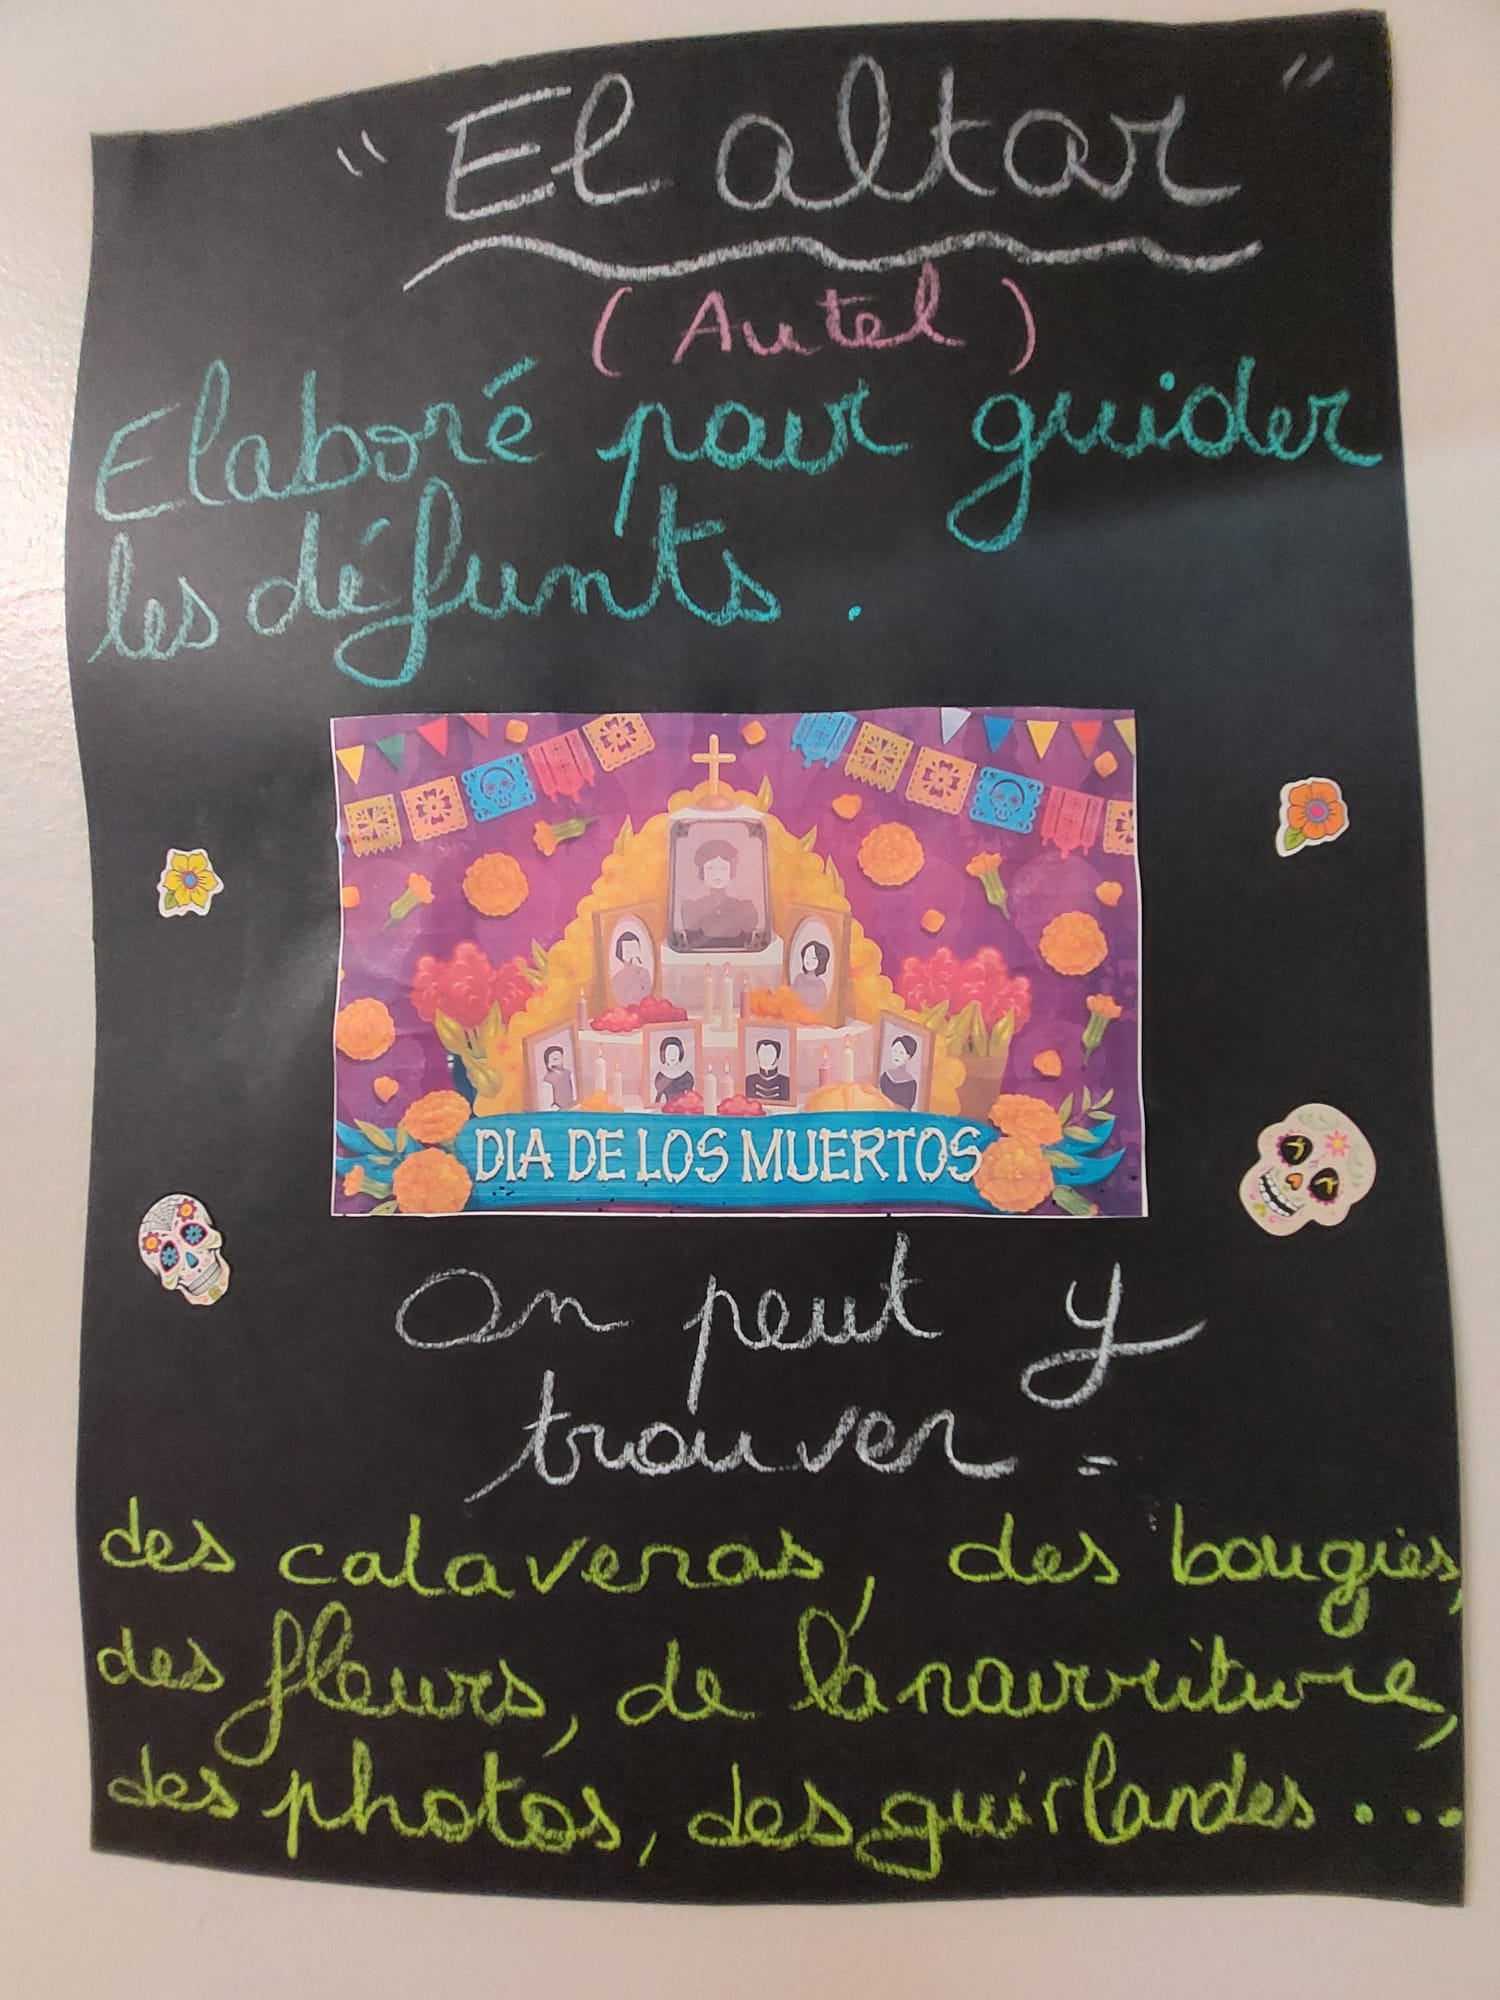 "El altar"
(Autel)
Elaboré pour guider
les défunts.
DIA DE LOS MUERTOS
On peut y
trouver =
des calaveras, des bougies,
des fleurs, de la nourriture,
des photos, des guirlandes...